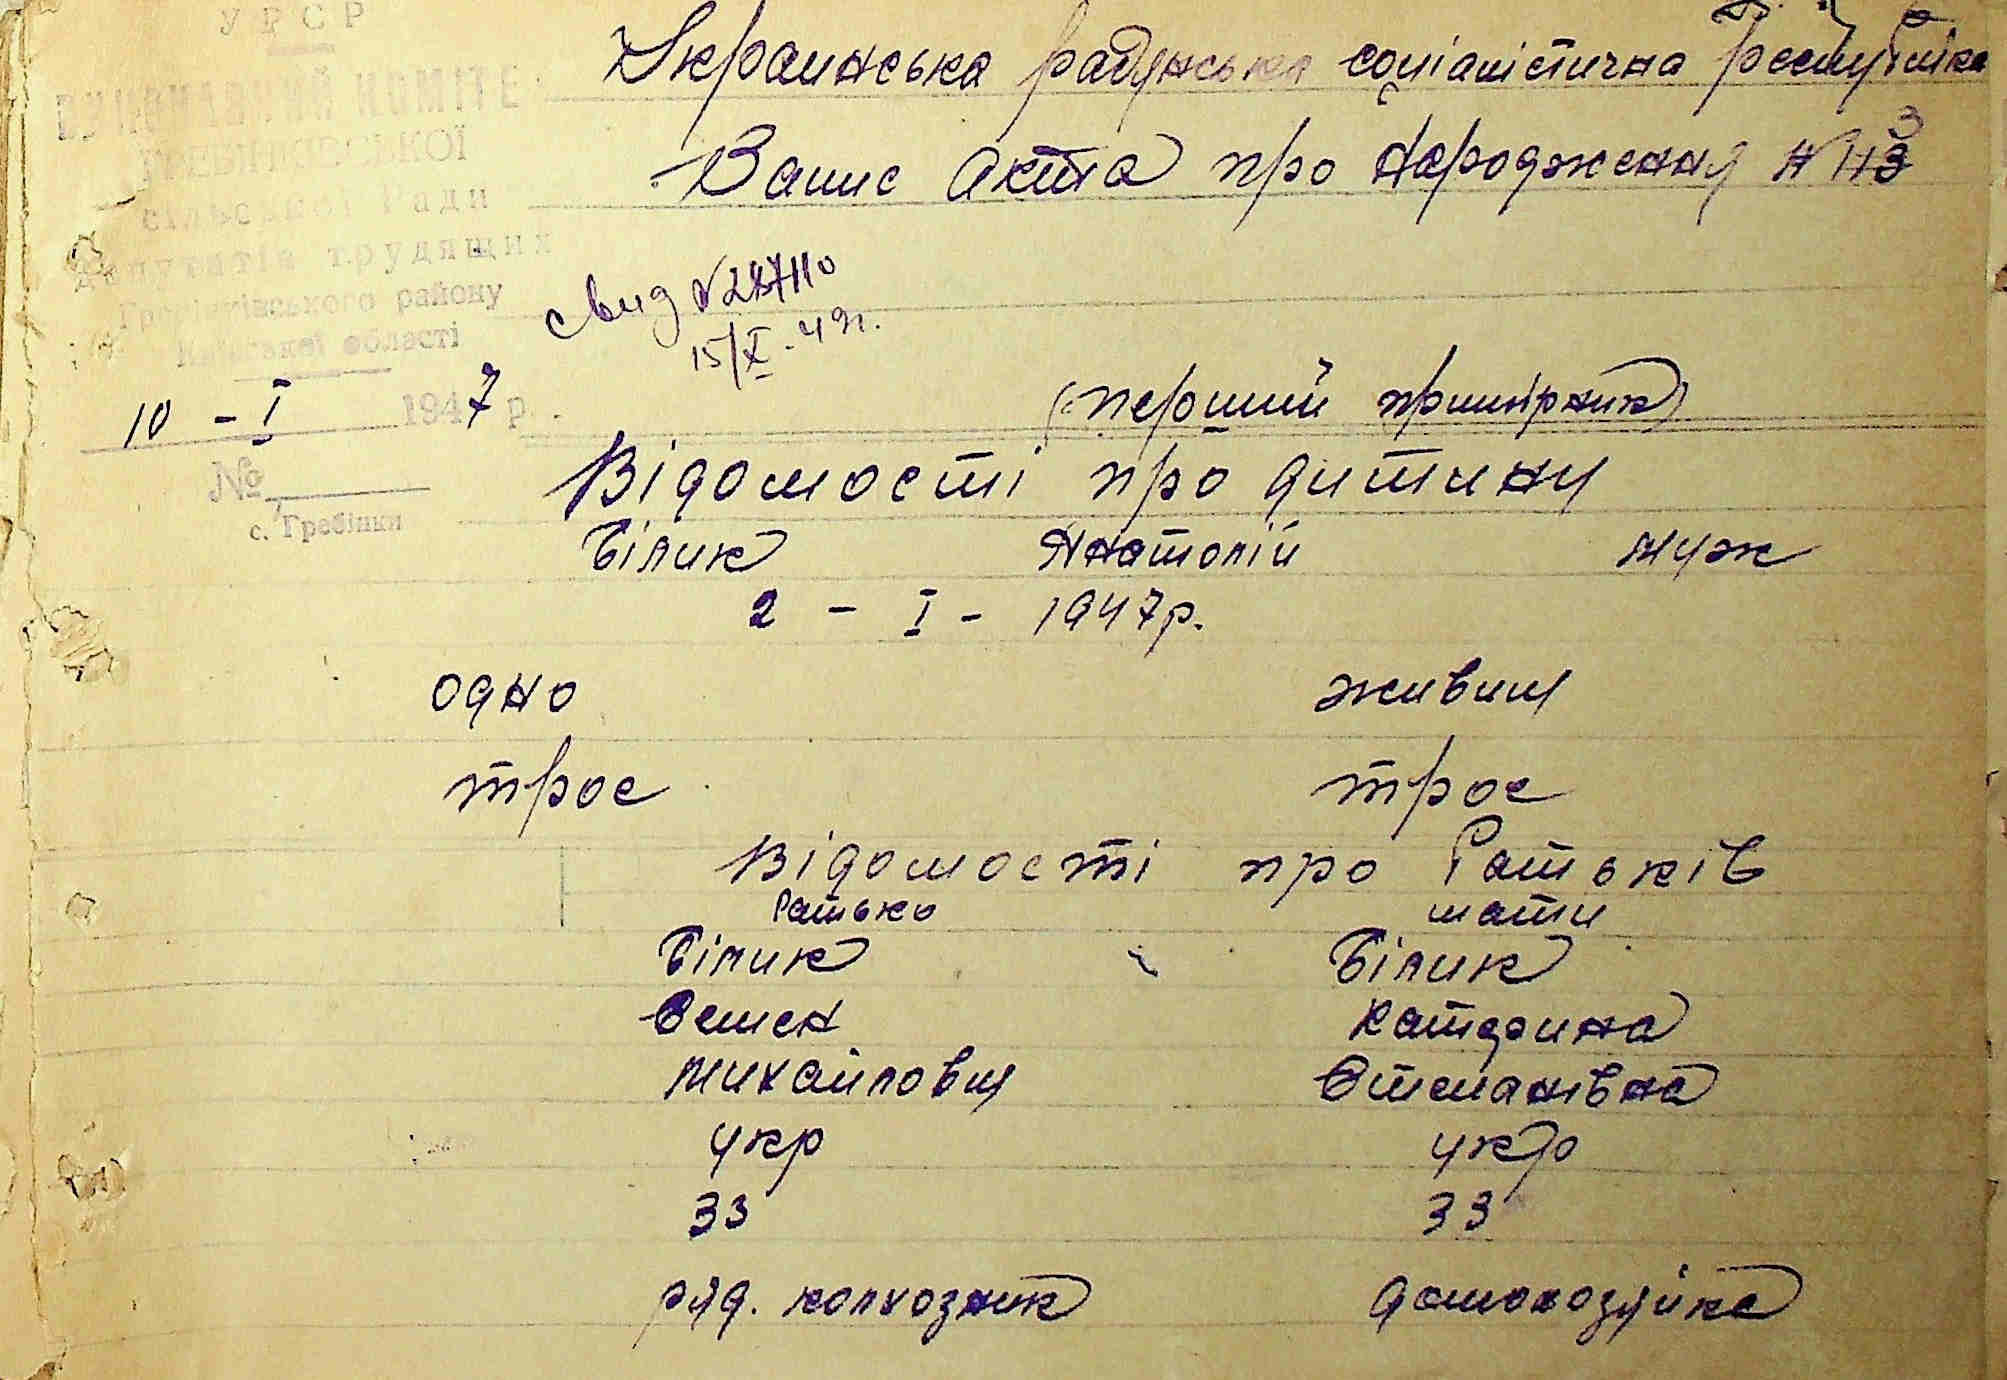 УРСР
ВИКОНАВЧИЙ КОМІТЕ
ГРЕБІНКІВСЬКОЇ
сільської Ради
депутатів трудящих
Гребінківського району
Київської області
10 - I 1947 р.
№
с. Гребінки
Украинська радянська соціалістична Республіка
Запис Акта про Народження №
свид №287110
15/X - 49г.
(перший примірник)
Відомості про дитину
Білик Анатолій муж
2 - I - 1947р.
одно живим
трое трое
Відомості про батьків
батько мати
Білик Білик
Семен Катерина
Михайлович Степанівна
укр укр
33 33
ряд. колхозник домохозяйка